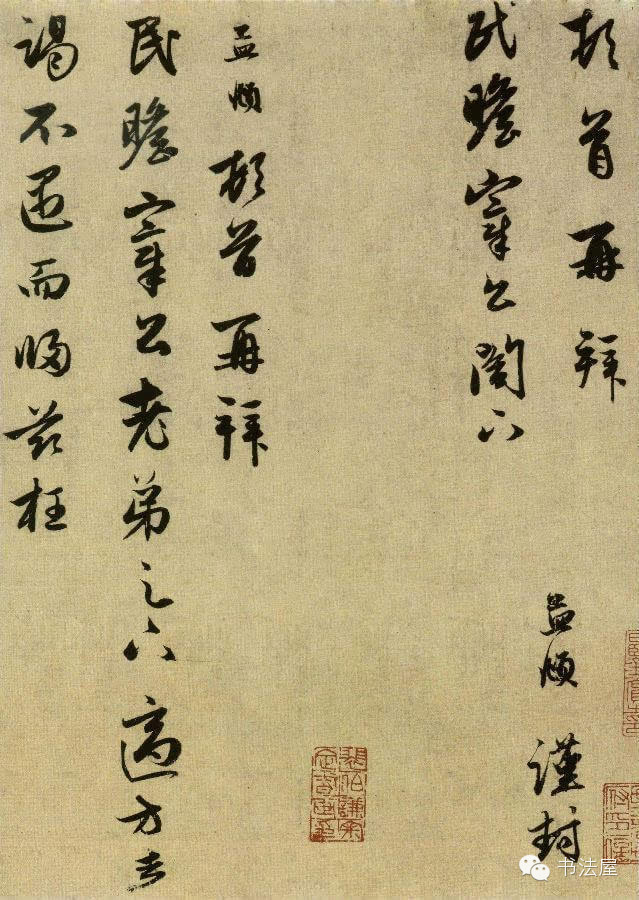 頓首再拜
孟頫 謹封
民瞻宰公閣下
孟頫頓首再拜
民瞻宰公老弟足下 適方走
謁不遇而歸茲枉
书法屋